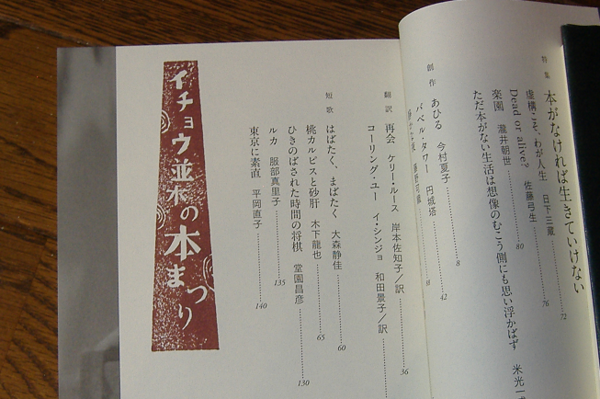 特集
本がなければ生きていけない
虚構こそ、わが人生 日下三蔵 72
Dead or alive? 佐藤弓生 76
楽園 瀧井朝世 80
ただ本がない生活は想像のむこう側にも思い浮かばず 米光一
創作
あひる 今村夏子 8
バベル・タワー 円城塔 42
翻訳
再会 ケリー・ルース 岸本佐知子/訳 36
コーリング・ユー イ・シンジョ 和田景子/訳
短歌
はばたく、まばたく 大森静佳 60
桃カルピスと砂肝 木下龍也 65
ひきのばされた時間の将棋 堂園昌彦 130
ルカ 服部真里子 135
東京に素直 平岡直子 140
イチョウ並木の本まつり